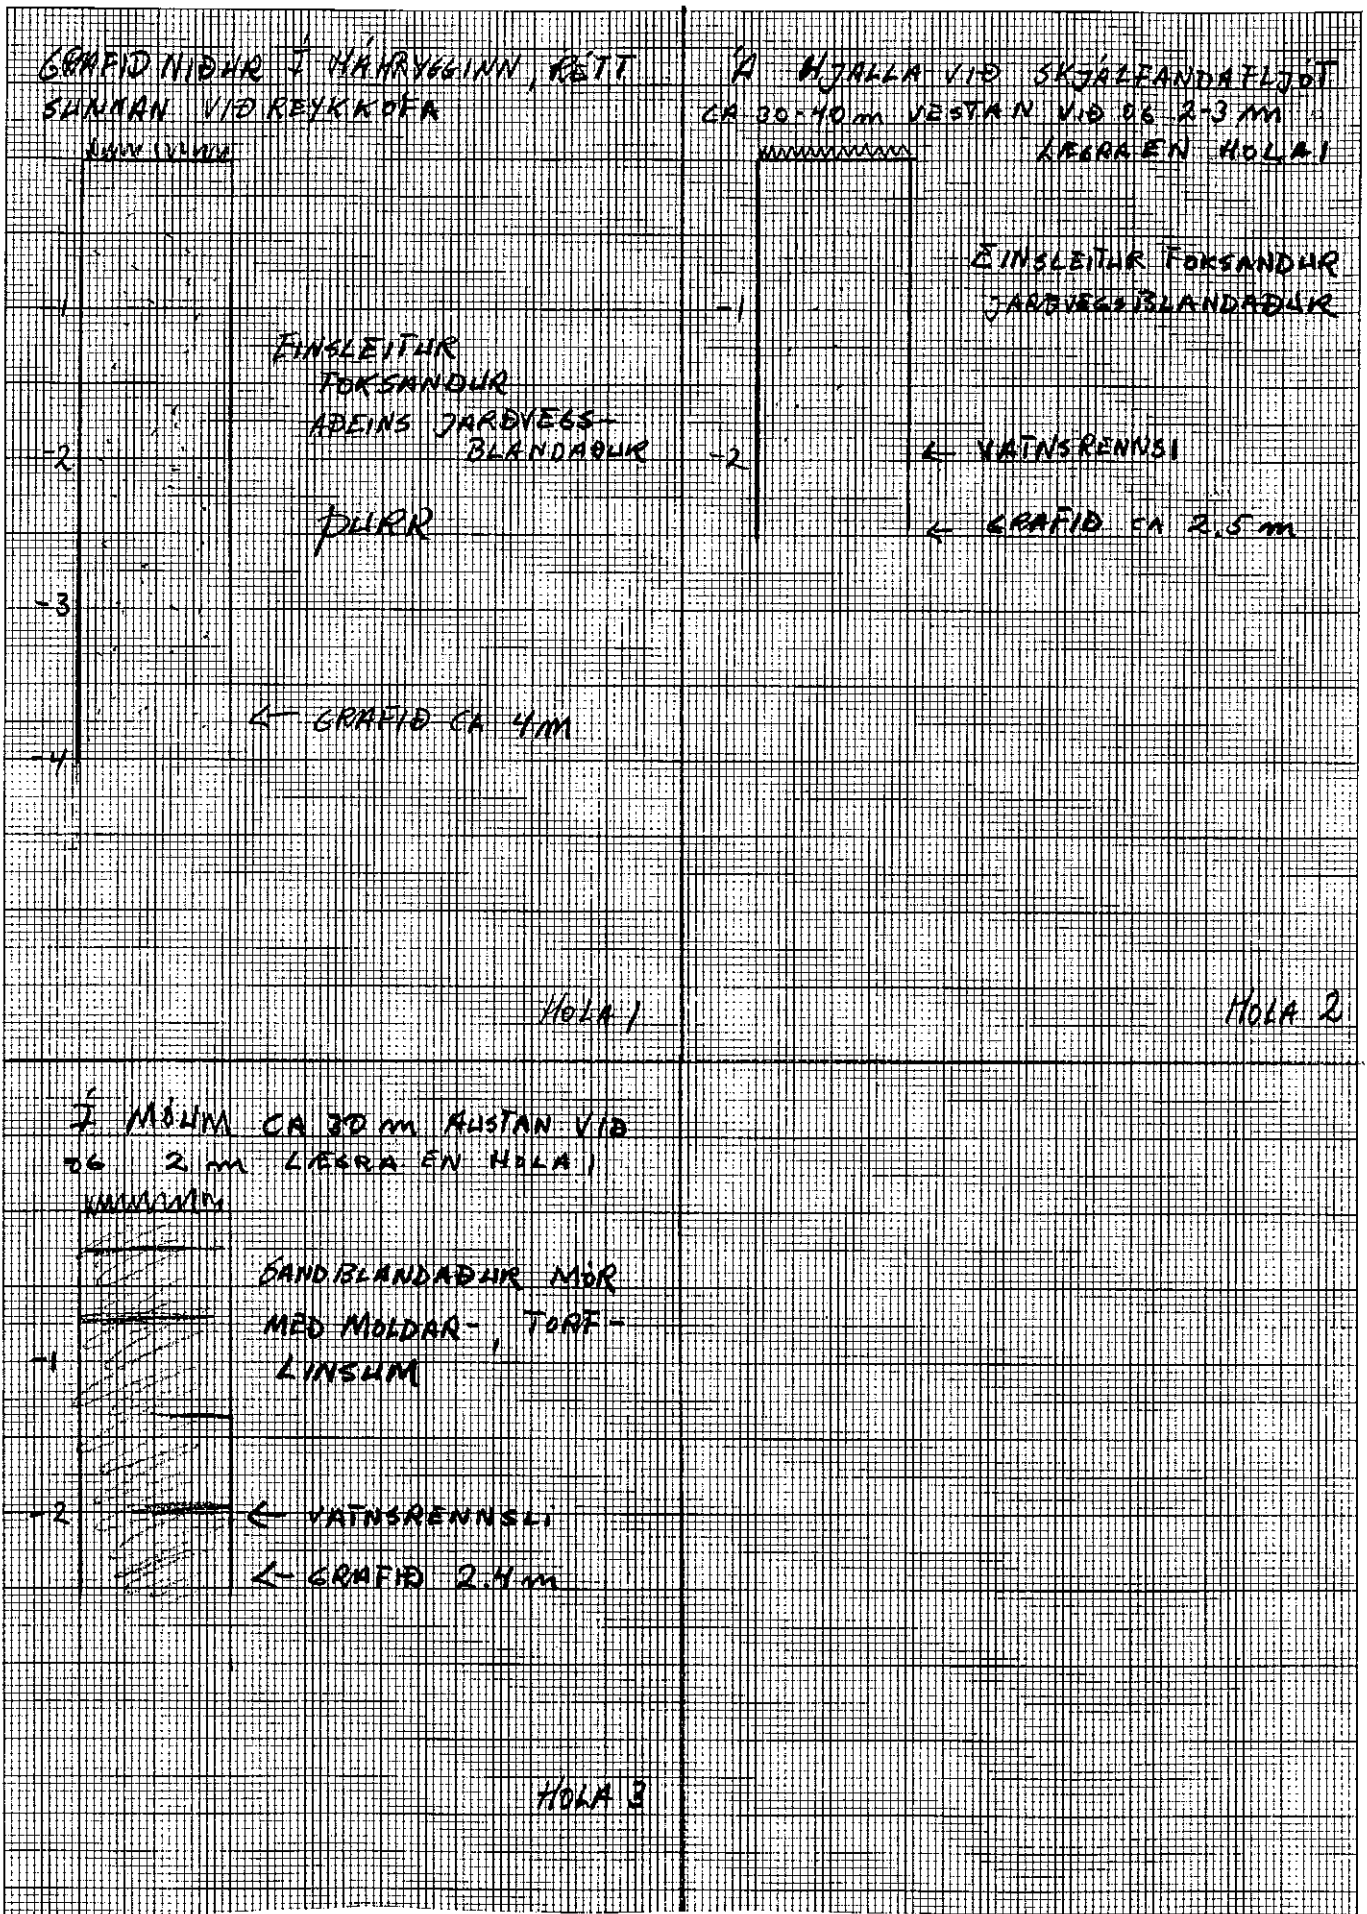 GRAFIÐ NIÐUR Í HÁHRYGGINN, RÉTT
SUNNAN VIÐ REYKKOFA
-1
EINSLEITUR
FOKSANDUR
AÐEINS JARÐVEGS-
BLANDAÐUR
-2
ÞURR
-3
← GRAFIÐ CA 4 m
-4
HOLA 1
Á HJALLA VIÐ SKJÁLFANDAFLJÓT
CA 30-40 m VESTAN VIÐ OG 2-3 m
LÆGRA EN HOLA 1
EINSLEITUR FOKSANDUR
JARÐVEGSBLANDAÐUR
-1
-2
← VATNSRENNSI
← GRAFIÐ CA 2.5 m
HOLA 2
Í MÓUM CA 30 m AUSTAN VIÐ
OG 2 m LÆGRA EN HOLA 1
SANDBLANDAÐUR MÓR
MEÐ MOLDAR-, TORF-
LINSUM
-1
-2
← VATNSRENNSLI
← GRAFIÐ 2.4 m
HOLA 3